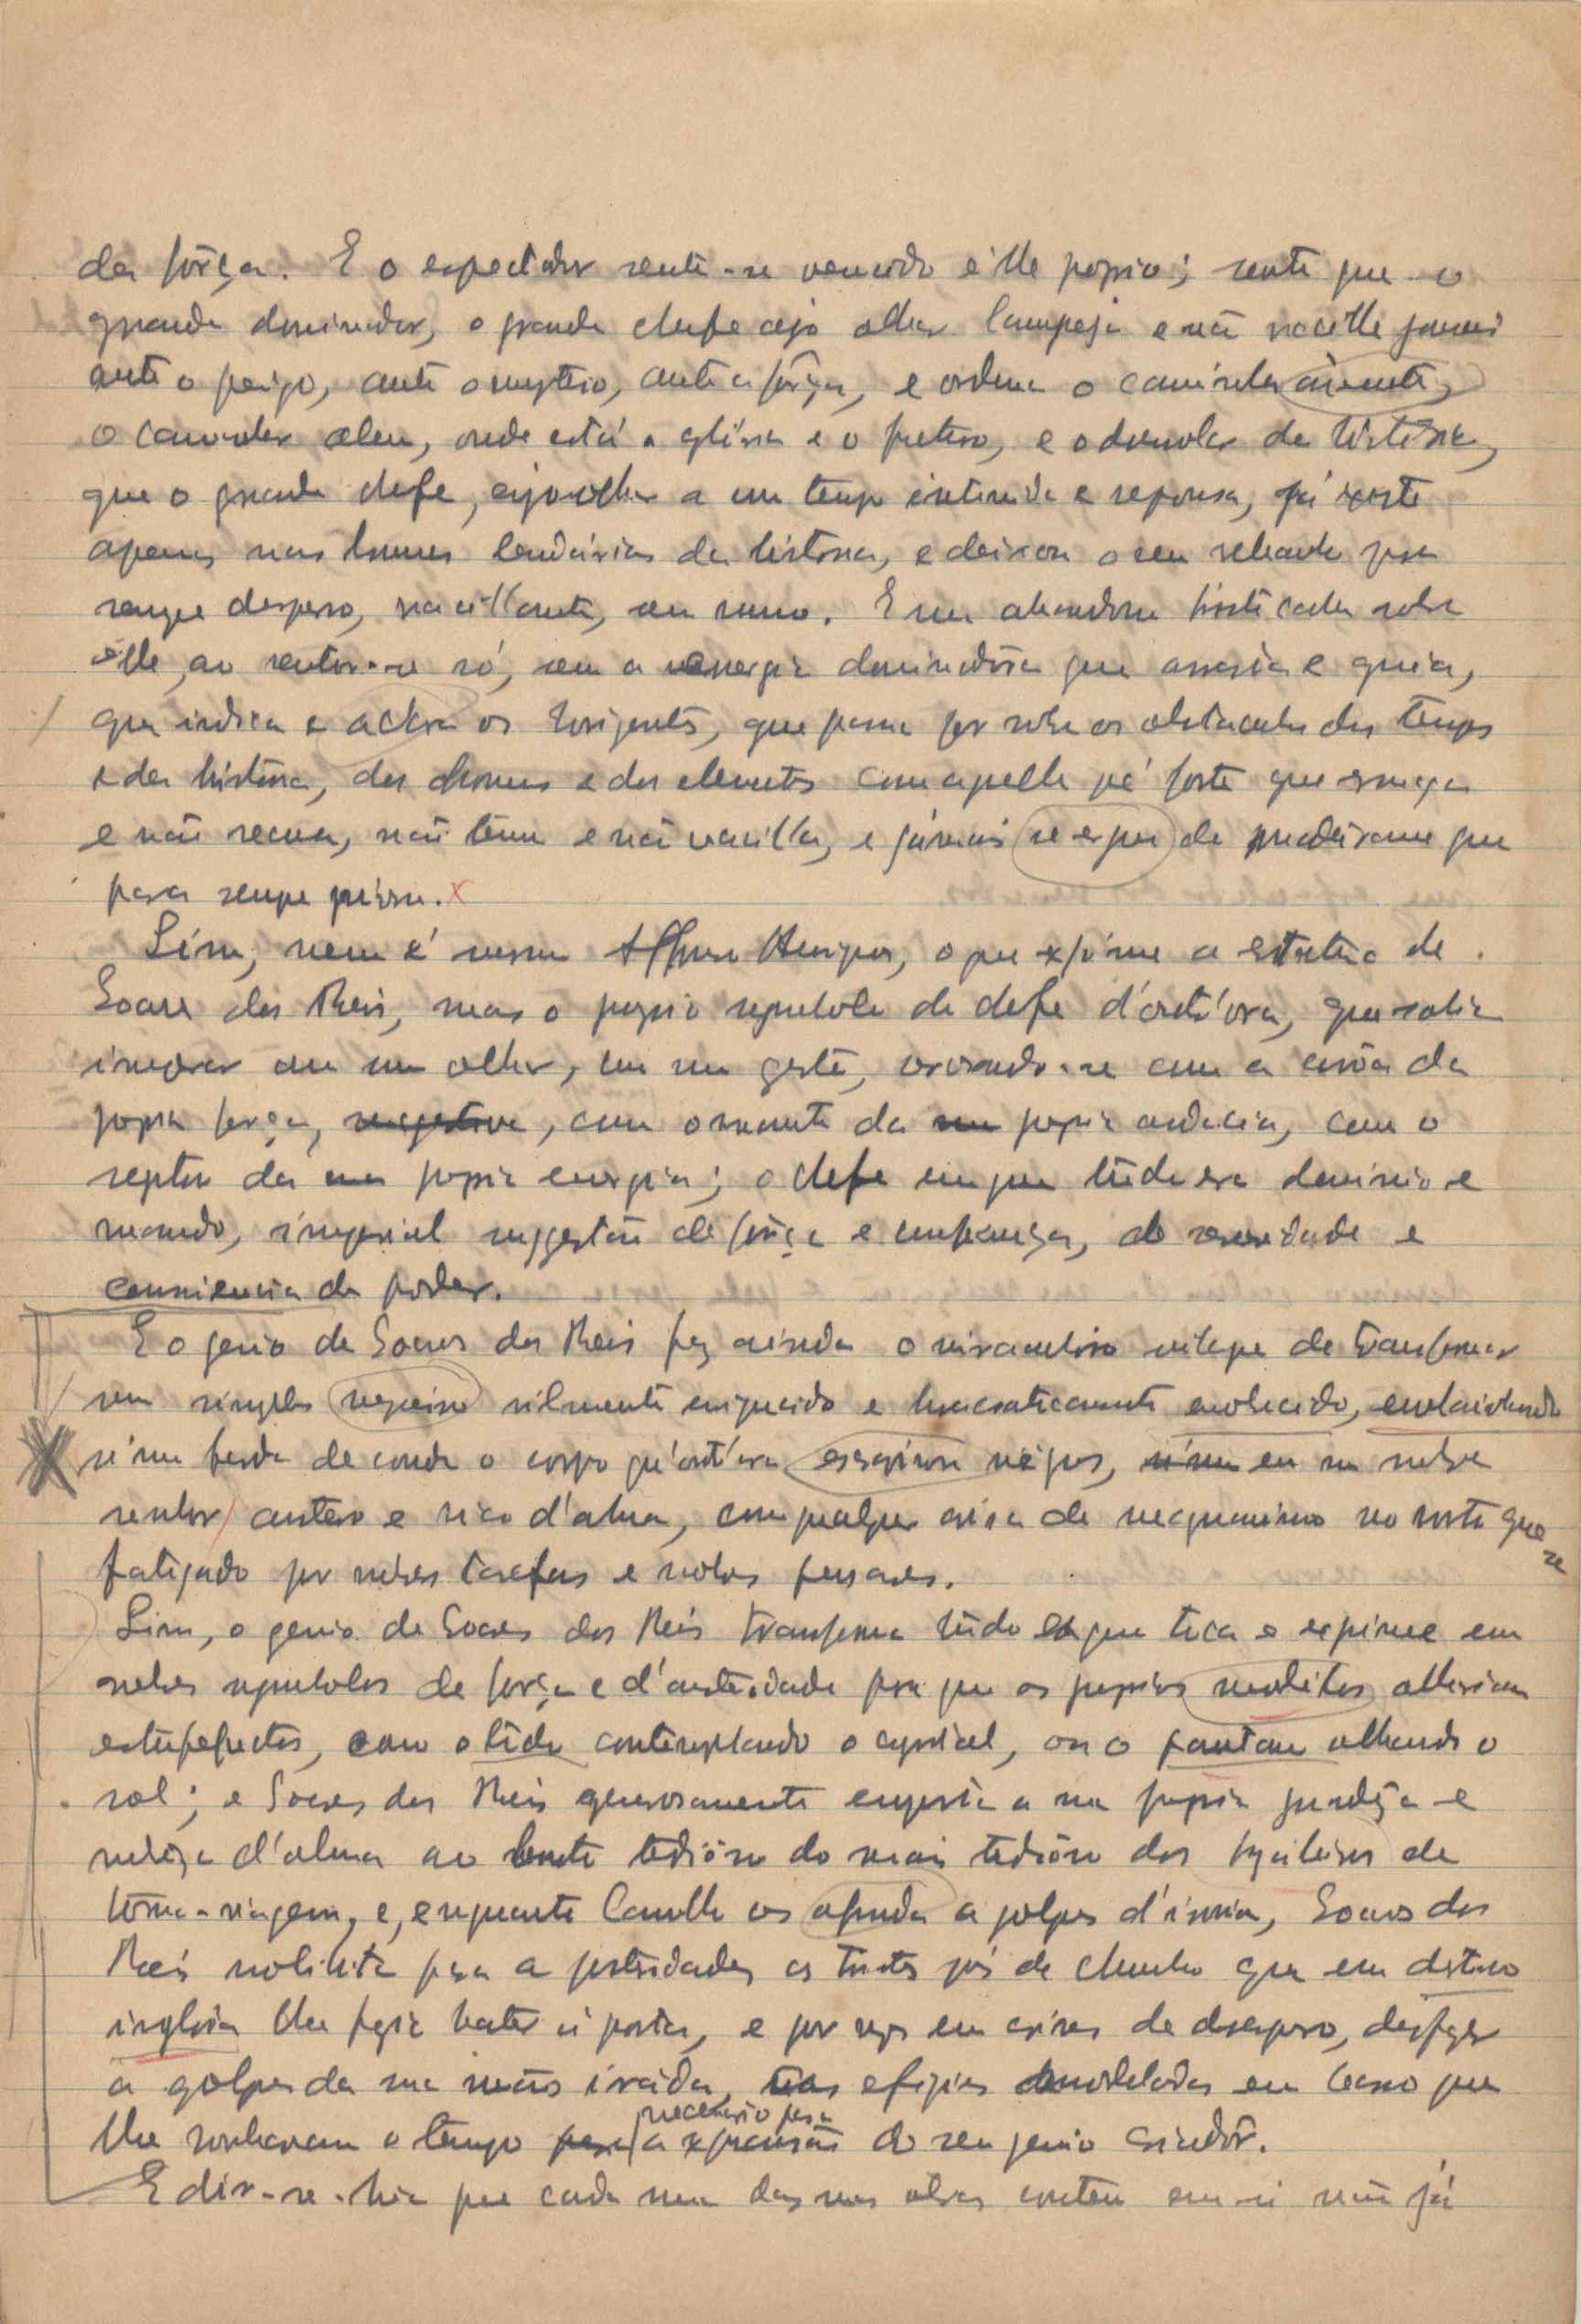 da fôrça. E o espectador sente-se vencido êlle proprio; sente que o
grande dominador, o grande chefe cujo olhar lampeja e não vacilla jamais
ante o perigo, ante o mysterio, ante a fôrça, e ordena o caminhar àvante,
o caminhar alem, onde está a glória e o futuro, e o desenrolar da história,
que o grande chefe, cujo olhar a um tempo intimida e repousa, já existe
apenas nas brumas lendárias da história, e deixou o seu rebanho para
sempre disperso, vacillante, sem rumo. E um abandono
êlle, ao sentir-se só, sem a energia dominadôra que arrasta e guia,
que indica e aclara os horizontes, que passa por sobre os obstaculos do tempo
e da história, dos homens e dos elementos com aquelle pé forte que esmaga
e não recua, não teme e não vacilla, e jámais se ergueu de
para sempre
Sim, nem é mesmo Affonso Henriques, o que exprime a estatua de
Soares dos Reis, mas o proprio symbolo do chefe d'outr'ora, que sabia
imperar com um olhar, com um gesto, coroando-se com a corôa da
propria força, com o manto da propria audacia, com o
sceptro da propria energia; o chefe em que tudo era dominio e
mando, imperial suggestão de fôrça e confiança, de serenidade e
consciencia do poder.
E o genio de Soares dos Reis fez ainda o miraculoso milagre de transformar
um simples vilmente enriquecido e burocraticamente enobrecido,
farda de conde o corpo qu'outr'ora num nobre
senhor austero e rico d'alma, com qualquer coisa de magnanimo no rosto que se
fatigado por nobres tarefas e nobres pensares.
Sim, o genio de Soares dos Reis transforma tudo em que toca e exprime em
nobres symbolos de força e d'austeridade para que os proprios modelos olhariam
estupefactos, como o contemplando o crystal, ou o olhando o
sol; e Soares dos Reis generosamente empresta a sua propria grandeza e
nobreza d'alma ao busto tedioso do mais tedioso dos brasileiros de
torna-viagem, e, enquanto Camillo os a golpes d'ironia, Soares dos
Reis nobilita para a posteridade os tristes pés de chumbo que um destino
inglorio lhe fazia bater á porta, e por vezes em crises de desespero, desfazer
a golpes da sua mão irada, as efigies modeladas em barro que
lhe roubavam o tempo necessario para a expansão do seu genio criadôr.
E dir-se-hia que cada uma das suas obras contem em si não já